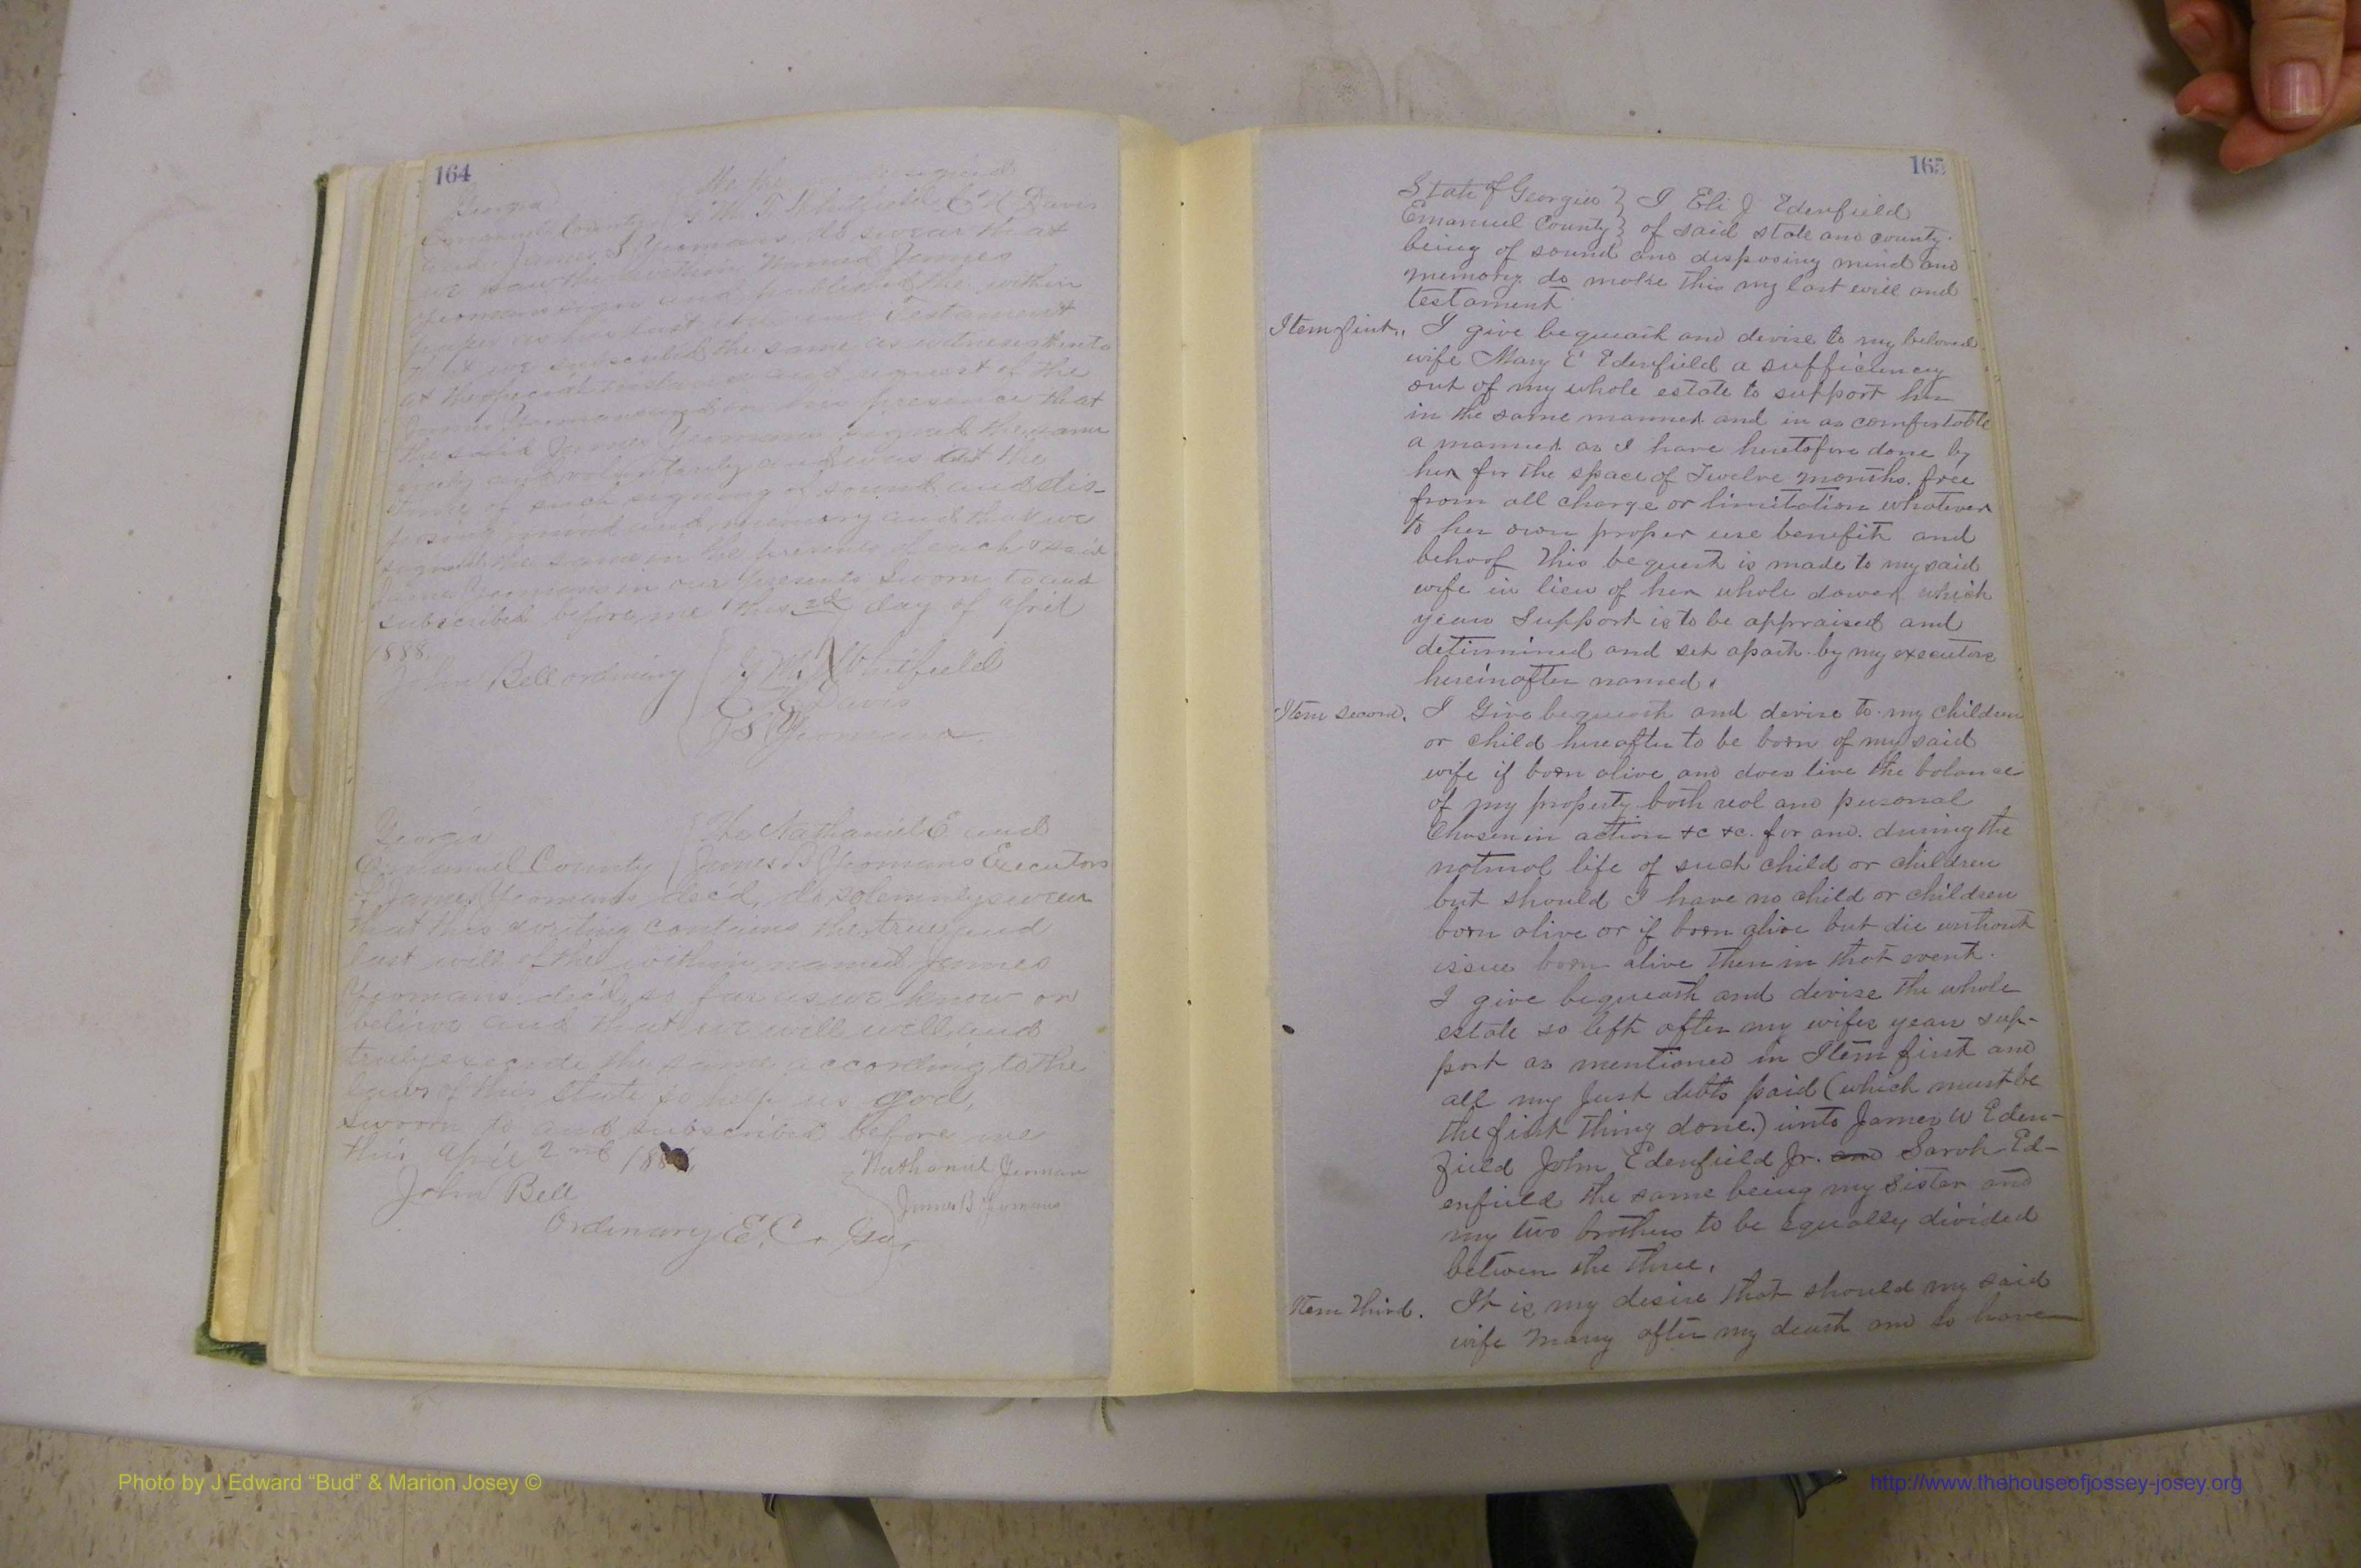 164
Georgia
Emanuel County
J M. T. Whitfield C H Davis
and James S Yeomans do swear that
we saw the within named James
Yeomans sign and published the within
paper as his last will and Testament
that we subscribed the same as witness thereto
at the special instance and request of the
James Yeomans and in his presence that
the said James Yeomans signed the same
freely and voluntarily and was at the
time of such signing of sound and dis-
posing mind and memory and that we
signed the same in the presence of each & said
James Yeomans in our presents Sworn to and
subscribed before me this 2d day of April
1888.
John Bell ordinary
J M. Whitfield
C H Davis
J S Yeomans
Georgia
Emanuel County
The Nathaniel E and
James B Yeomans Executors
of James Yeomans dec'd, do solemnly swear
that this writing contains the true and
last will of the within named James
Yeomans dec'd, so far as we know or
believe and that we will well and
truly execute the same according to the
laws of this State so help us god,
Sworn to and subscribed before me
this April 2nd
Nathaniel Yeomans
John Bell
James B Yeomans
Ordinary E. C. Ga,
165
State of Georgia } I Eli J Edenfield
Emanuel County } of said state and county.
being of sound and disposing mind and
memory. do make this my last will and
testament
Item first., I give bequeath and devise to my beloved
wife Mary E Edenfield a sufficiency
out of my whole estate to support her
in the same manner and in as comfortable
a manner as I have heretofore done by
her for the space of Twelve months. free
from all charge or limitation whatever
to her own proper use benefit and
behoof This bequest is made to my said
wife in lieu of her whole dower, which
years Support is to be appraised and
determined and set apart by my executors
hereinafter named.
Item second. I Give bequeath and devise to my children
or child hereafter to be born of my said
wife if born alive and does live the balance
of my property both real and personal
Chosen in action &c &c. for and during the
natural life of such child or children
but should I have no child or children
born alive or if born alive but die without
issue born alive then in that event.
I give bequeath and devise the whole
estate so left after my wifes years sup-
port as mentioned in Item first and
all my Just debts paid (which must be
the first thing done.) unto James W Eden-
field John Edenfield Jr. and Sarah Ed-
enfield the same being my sister and
my two brothers to be equally divided
between the three.
Item Third. It is my desire that should my said
wife marry after my death and so have
Photo by J Edward “Bud” & Marion Josey ©
http://www.thehouseofjossey-josey.org